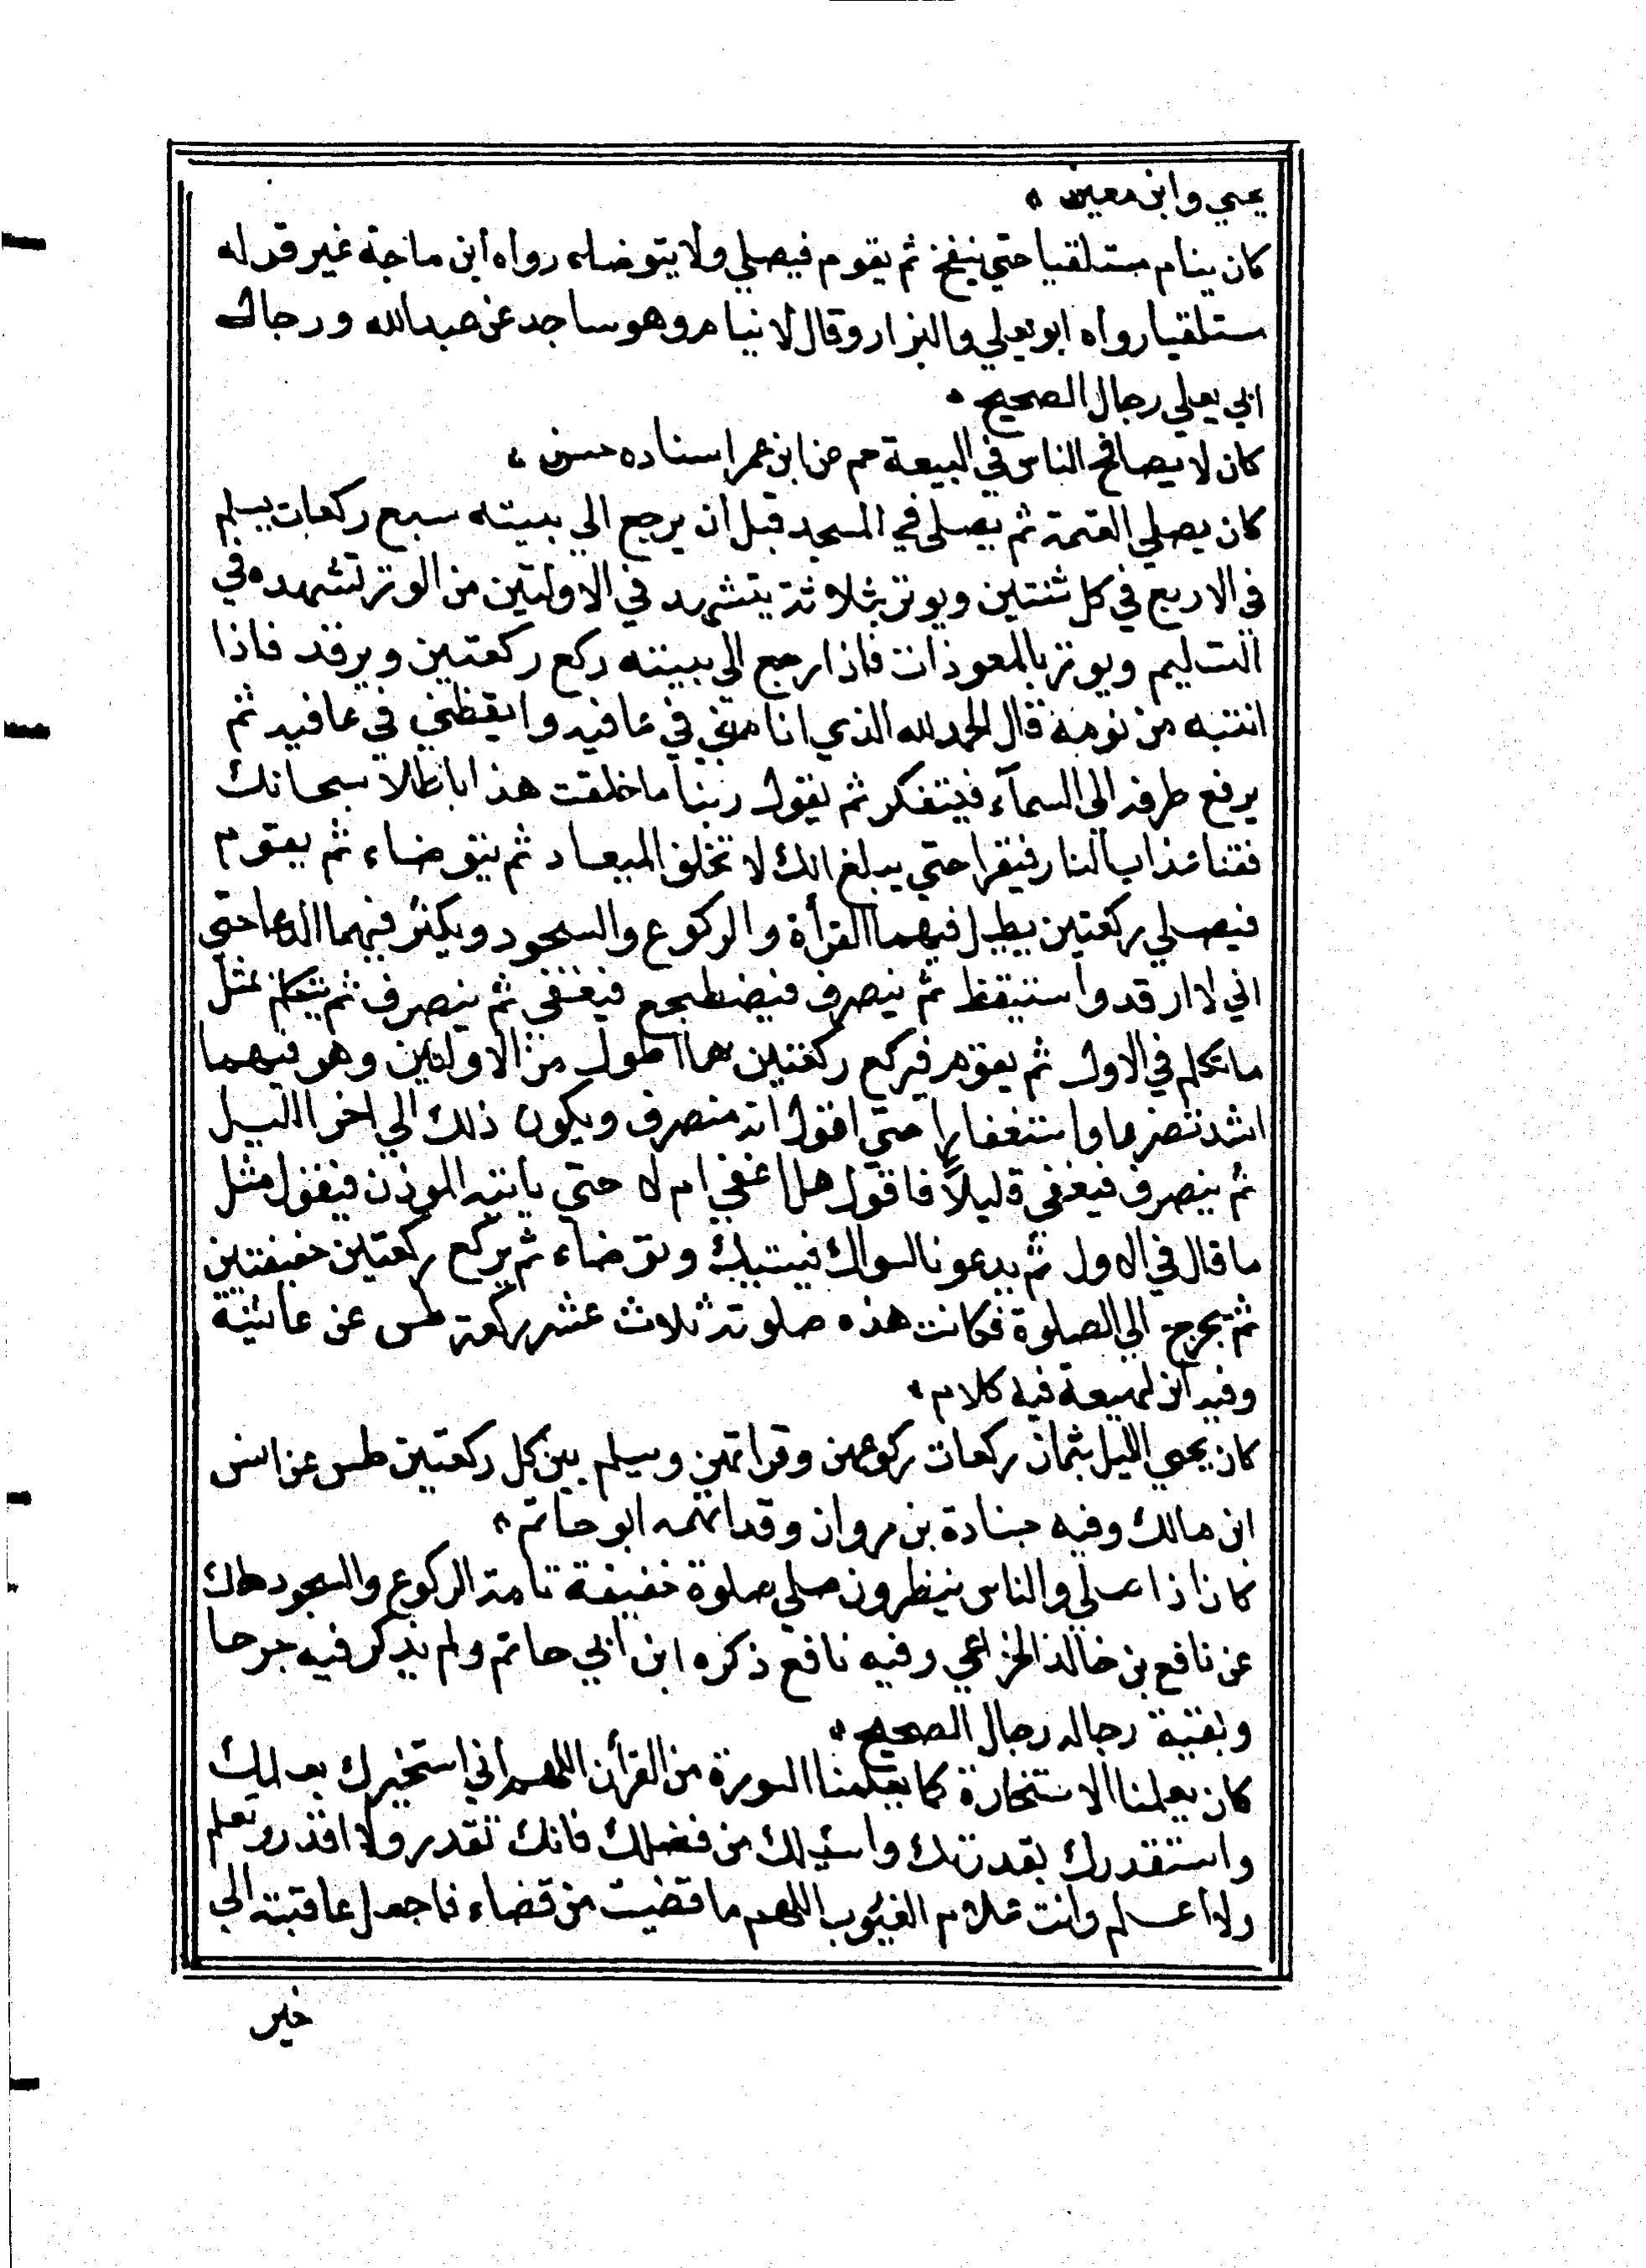 يحيي وابن معين
كان ينام مستلقيا حتي ينفخ ثم يقوم فيصلي ولا يتوضاء رواه ابن ماجة غير قوله
مستلقيا رواه ابو يعلي والبزار وقال لا نيام وهو ساجد عن عبد الله ورجال
ابي يعلي رجال الصحيح
كان لا يصافح الناس في البيعة حم عن ابن عمر اسناده حسن
كان يصلي العتمة ثم يصلي في المسجد قبل ان يرجع الي بيته سبع ركعات يسلم
في الاربع في كل ثنتين ويوتر بثلاثة يتشهد في الاوليين من الوتر تشهده في
التسليم ويوتر بالمعوذات فاذا رجع الي بيته ركع ركعتين ويرقد فاذا
انتبه من نومه قال الحمد لله الذي انامني في عافيه وايقظني في عافيه ثم
يرفع طرفه الي السمآء فيتفكر ثم يقول ربنا ما خلقت هذا باطلا سبحانك
فقنا عذاب النار فيقرا حتي يبلغ انك لا تخلف الميعاد ثم يتوضاء ثم يقوم
فيصلي ركعتين يطيل فيهما القرأة والركوع والسجود ويكثر فيهما الدعا حتي
اني لا ارقد واستيقظ ثم ينصرف فيضطجع فيغفي ثم ينصرف ثم يتكلم بمثل
ما تكلم في الاول ثم يقوم فيركع ركعتين هما اطول من الاوليين وهو فيهما
اشد تضرعا واستغفارا حتي اقول انه منصرف ويكون ذلك الي اخر الليل
ثم ينصرف فيغفي قليلاً فاقول هل اغفي ام لا حتي ياتيه الموذن فيقول مثل
ما قال في الاول ثم يدعو بالسواك فيستيك وتوضاء ثم يركع ركعتين خفيفتين
ثم يخرج الي الصلوة فكانت هذه صلوته ثلاث عشر ركعة طس عن عائشة
وفيه ابن لهيعة فيه كلام
كان يحيي الليل بثمان ركعات ركوعهن وقراتهن ويسلم بين كل ركعتين طس عن انس
ابن مالك وفيه جنادة بن مروان وقد اتهمه ابو حاتم
كان اذا صلي والناس ينظرون صلي صلوة خفيفة تامة الركوع والسجود طك
عن نافع بن خالد الخزاعي وفيه نافع ذكره ابن ابي حاتم ولم يذكر فيه جرحا
وبقية رجاله رجال الصحيح
كان يعلمنا الاستخارة كما يعلمنا السورة من القرأن اللهم اني استخيرك بعلمك
واستقدرك بقدرتك واسئلك من فضلك فانك تقدر ولا اقدر وتعلم
ولا اعلم وانت علام الغيوب اللهم ما قضيت من قضاء فاجعل عاقبته الي
خير